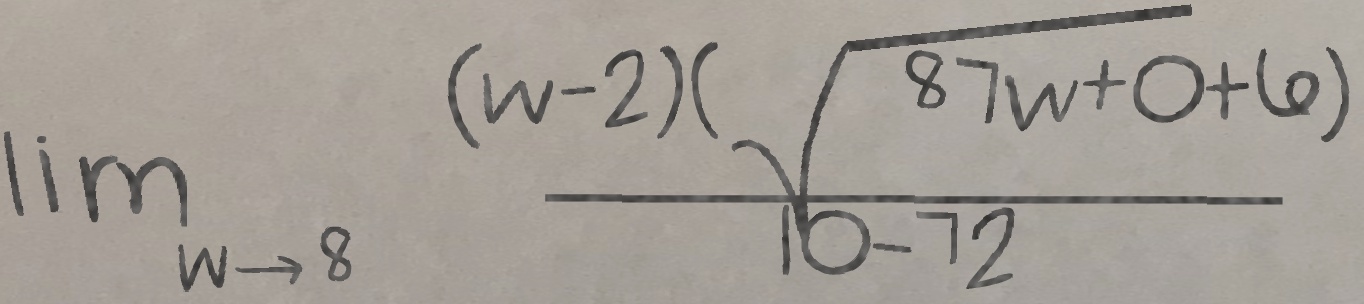 \lim_{w \to 8} \frac{(w-2)(\sqrt{87w+0}+6)}{10-72}